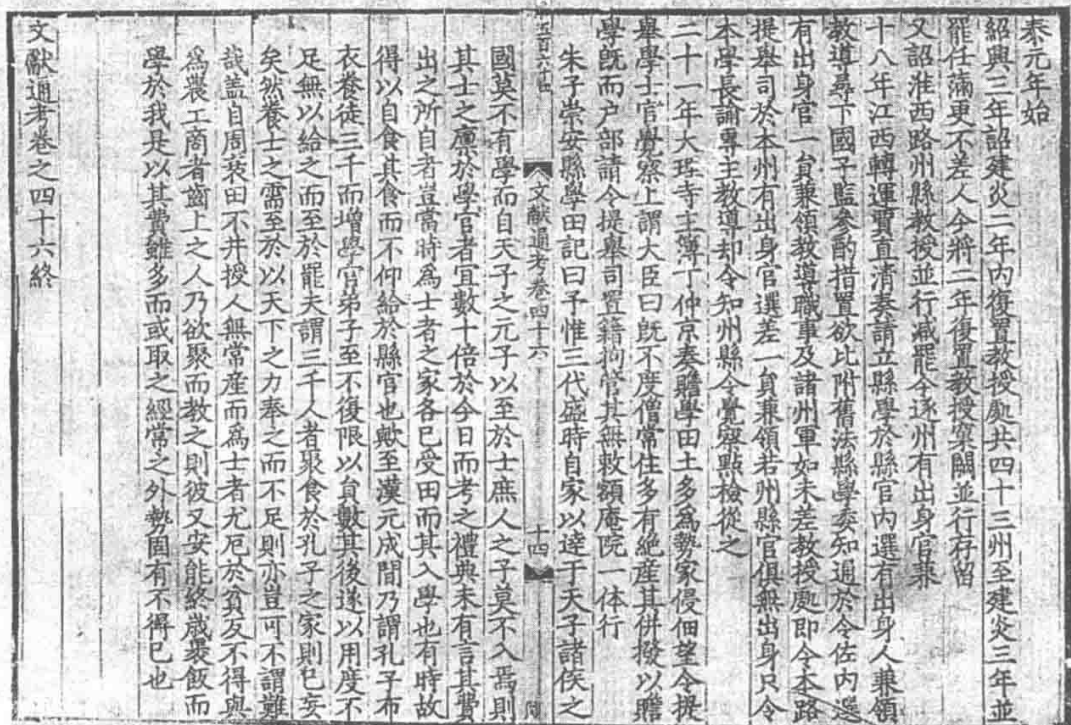 泰元年始
紹興三年詔建炎二年內復置教授處共四十三州至建炎三年並
罷任滿更不差人今將二年復置教授窠闕並行存留
又詔淮西路州縣教授並行减罷令逐州有出身官兼
十八年江西轉運賈直清奏請立縣學於縣官內選有出身人兼領
教導尋下國子監參酌措置欲比附舊法縣學委知通於令佐內選
有出身官一員兼領教導職事及諸州軍如未差教授處即令本路
提舉司於本州有出身官選差一員兼領若州縣官俱無出身只令
本學長諭專主教導却令知州縣令覺察點檢從之
二十一年大理寺主簿丁仲京奏贍學田土多為勢家侵佃望令提
舉學士官覺察上謂大臣曰既不度僧常住多有絕産其併撥以贍
學既而户部請令提舉司置籍拘管其無敕額庵院一体行
朱子崇安縣學田記曰予惟三代盛時自家以逹于天子諸侯之
文献通考卷四十六
十四
國莫不有學而自天子之元子以至於士庶人之子莫不入焉則
其士之廪於學官者宜數十倍於今日而考之禮典未有言其費
出之所自者豈當時為士者之家各已受田而其入學也有時故
得以自食其食而不仰給於縣官也歟至漢元成間乃謂孔子布
衣養徒三千而增學官弟子至不復限以員數其後遂以用度不
足無以給之而至於罷夫謂三千人者聚食於孔子之家則已妄
矣然養士之需至於以天下之力奉之而不足則亦豈可不謂難
哉盖自周衰田不井授人無常産而為士者尤厄於貧反不得與
為農工商者齒上之人乃欲聚而教之則彼又安能終歳裹飯而
學於我是以其費雖多而或取之經常之外勢固有不得已也
文獻通考卷之四十六終